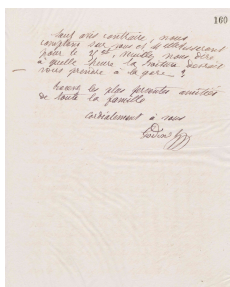 160
Sauf avis contraire, nous
comptons sur vous et
pour le 21 ct. Veuillez nous dire
à quelle heure la voiture devrait
vous prendre à la gare — ?
Recevez les plus ferventes amitiés
de toute la famille
Cordialement à vous
Godin